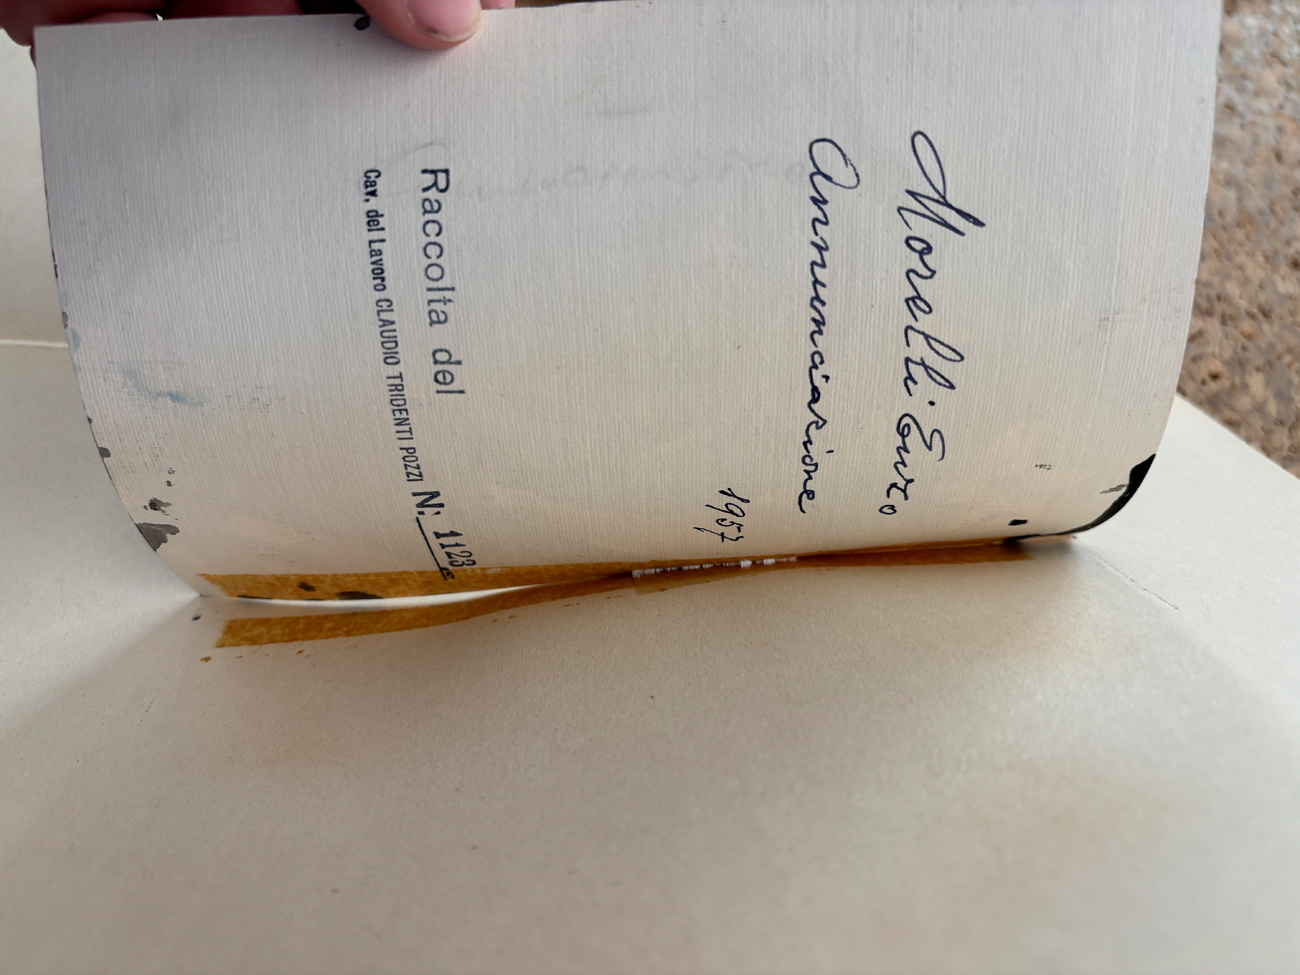 Morelli Enzo
Annunciazione
1957
Raccolta del
Cav. del Lavoro CLAUDIO TRIDENTI POZZI N: 1123